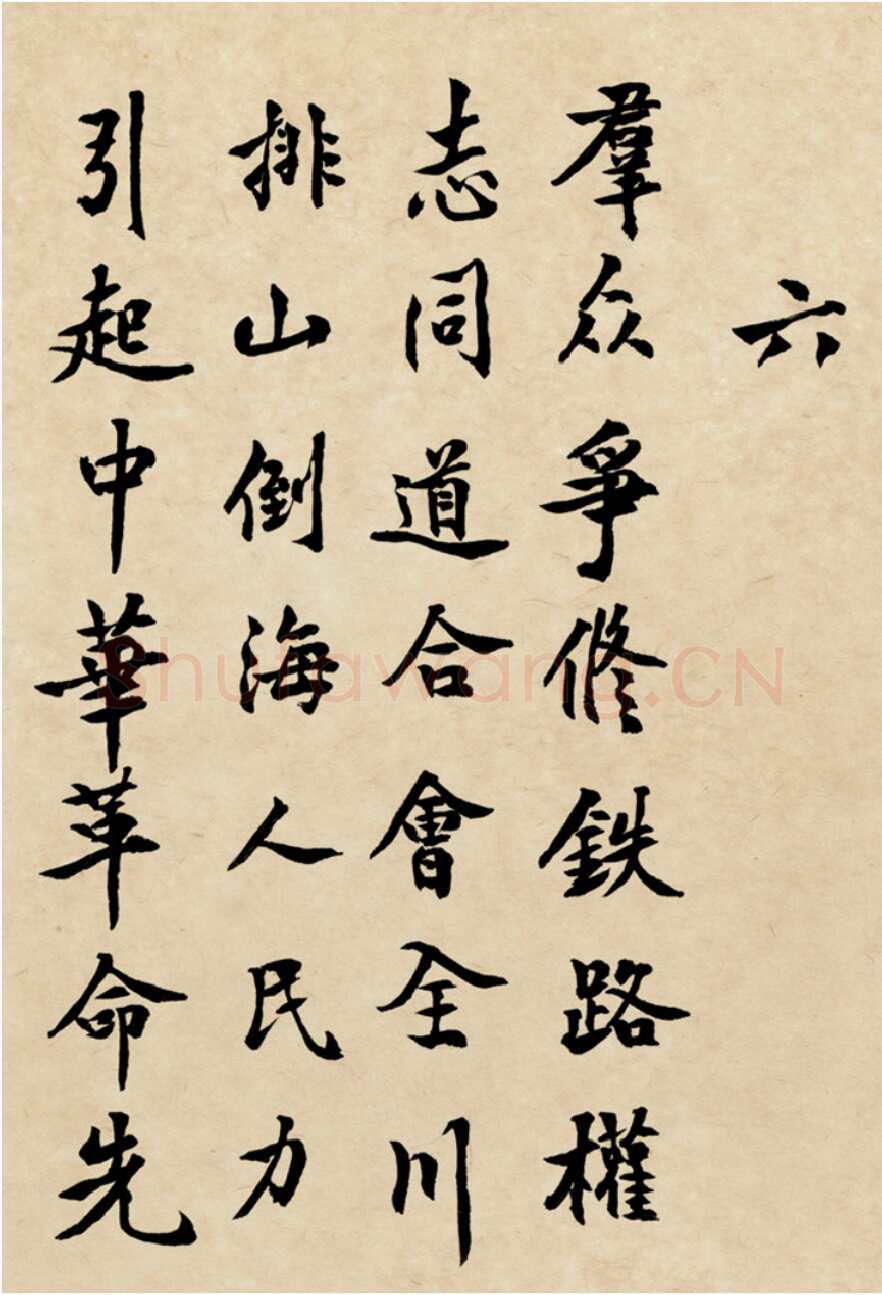 六
羣众爭修鉄路權
志同道合會全川
排山倒海人民力
引起中華革命先
Shufawang.CN